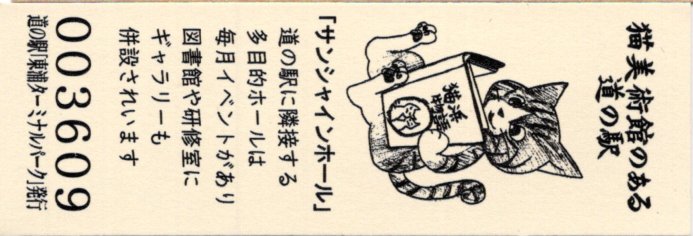 猫美術館のある
道の駅
猫浜物語
「サンシャインホール」
道の駅に隣接する
多目的ホールは
毎月イベントがあり
図書館や研修室に
ギャラリーも
併設されいます
003609
道の駅「東浦ターミナルパーク」発行